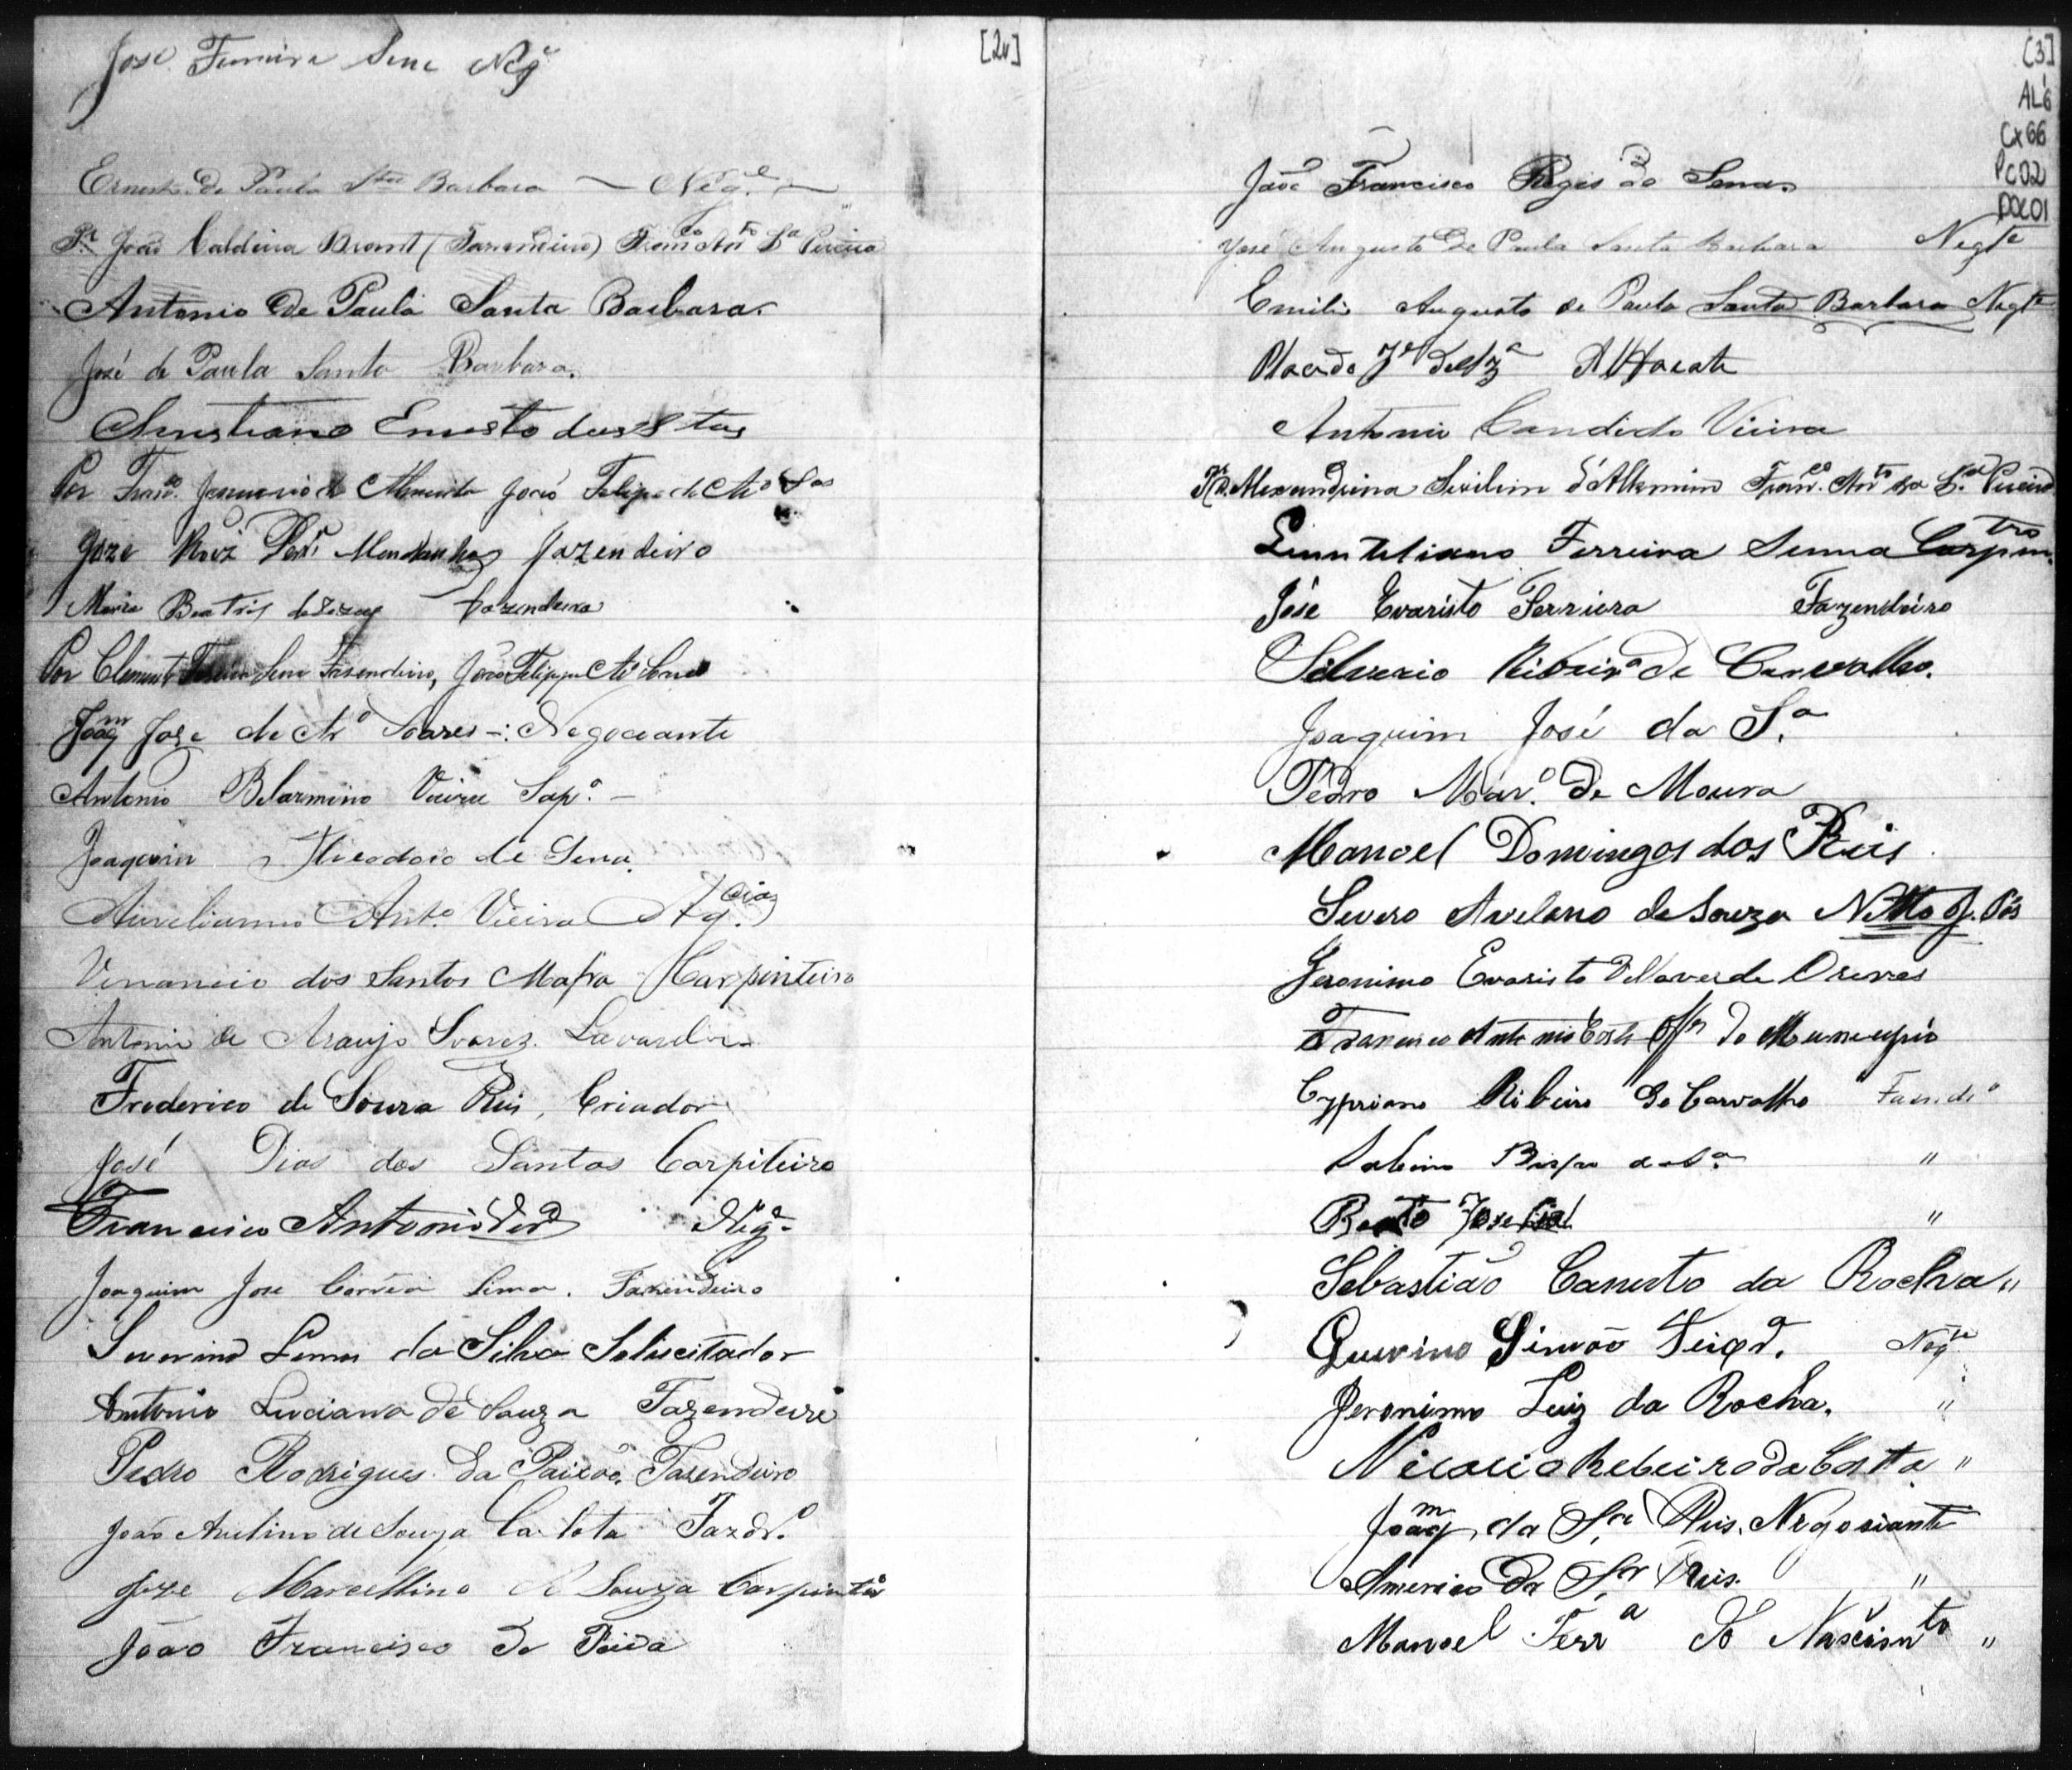 [2v]
José Ferreira Sena Neg.e
Ernesto de Paula Sta Barbara — Neg.e —
Pr João Caldeira Brant (Fazendeiro) Franco Anto Sa Pereira
Antonio de Paula Santa Barbara.
José de Paula Santa Barbara.
Christiano Ernesto dos Stos
Por Franco. Januario de João Felipe de Ao
Joze Roiz Mendanha fazendeiro
Maria Beatris de Fazendeira
Por Clemente Ferreira Sena Fasendeiro, João Felippe
Joaqm Jose de Ao Soares -: Negociante
Antonio Belarmino Vieira Sap.o -
Joaquim Theodoro de Sena.
Aureliano Ant.o Vieira Ag.cia
Venancio dos Santos Mafra Carpinteiro
Antonio de Araujo Soares. Lavrador
Frederico de Souza Reis, Criador
José Dias dos Santos Carpiteiro
Francisco Antonio Neg.e
Joaquim Jose Corrêa Lima. Fazendeiro
Severino Lemos da Silva Solicitador
Antonio Luciano de Souza Fazendeiro
Pedro Rodrigues da Paixão. Fazendeiro
João Avelino de Souza Carlota Fazdr.o
Joze Marcellino de Souza Carpinteiro
João Francisco de Paida
[3]
AL6
Cx66
Pc02
DOC01
João Francisco Regis de Sena.
José Augusto de Paula Santa Barbara Negte
Emilio Augusto de Paula Santa Barbara Negte
Placido Je
Antonio Candido Vieira
Pr D. Alexandrina d'Alkmim Franco. Anto da Sa Pereira
Ferreira Senna Carpintro
Jóse Evaristo Ferriera Fazendeiro
Silverio Ribeiro de Carvalho.
Joaquim José da S.a
Pedro Mar.o de Moura
Manoel Domingos dos Reis
Severo Avelano de Souza Netto J. Pás
Jeronimo Evaristo
Francisco Antonio Costa do Municipio
Cypriano Ribeiro de Carvalho Fazendo
Sabino Bispo da S.a "
Bento Jose "
Sebastião Canuto da Rocha "
Querino Simão Negte
Jeronimo Luiz da Rocha. "
Nicacio Rebeiro da Costa "
Joaqm da S.a Reis. Negosiante
Americo da S.a Reis. "
Manoel Ferra do Nascimto "